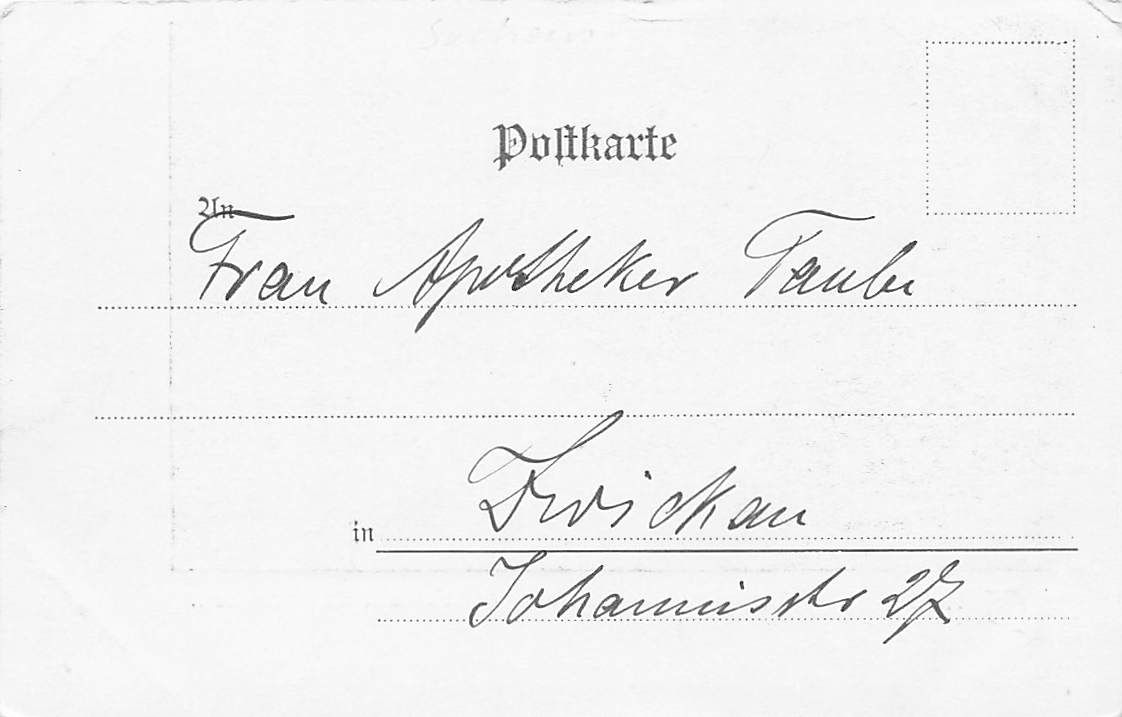 Postkarte
An
Frau Apotheker Tauber
in Zwickau
Johannisstr 27